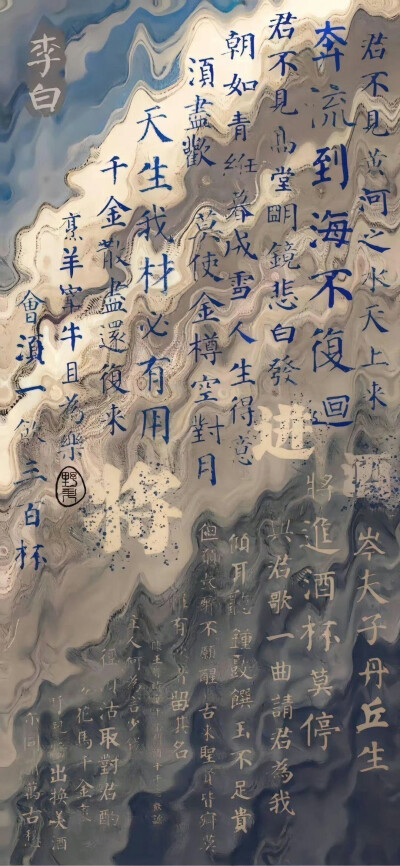 李白
君不見黃河之水天上来
奔流到海不復迴
君不見高堂明鏡悲白發
朝如青丝暮成雪人生得意
須盡歡莫使金樽空對月
天生我材必有用
千金散盡還復来
烹羊宰牛且為樂
會須一飲三百杯
將進酒
岑夫子丹丘生
將進酒杯莫停
與君歌一曲請君為我
傾耳聽鐘鼓饌玉不足貴
但願長醉不願醒古来聖賢皆寂莫
惟有者留其名
主人何為言少
沽取對君酌
花馬千金
出換美酒
同萬古